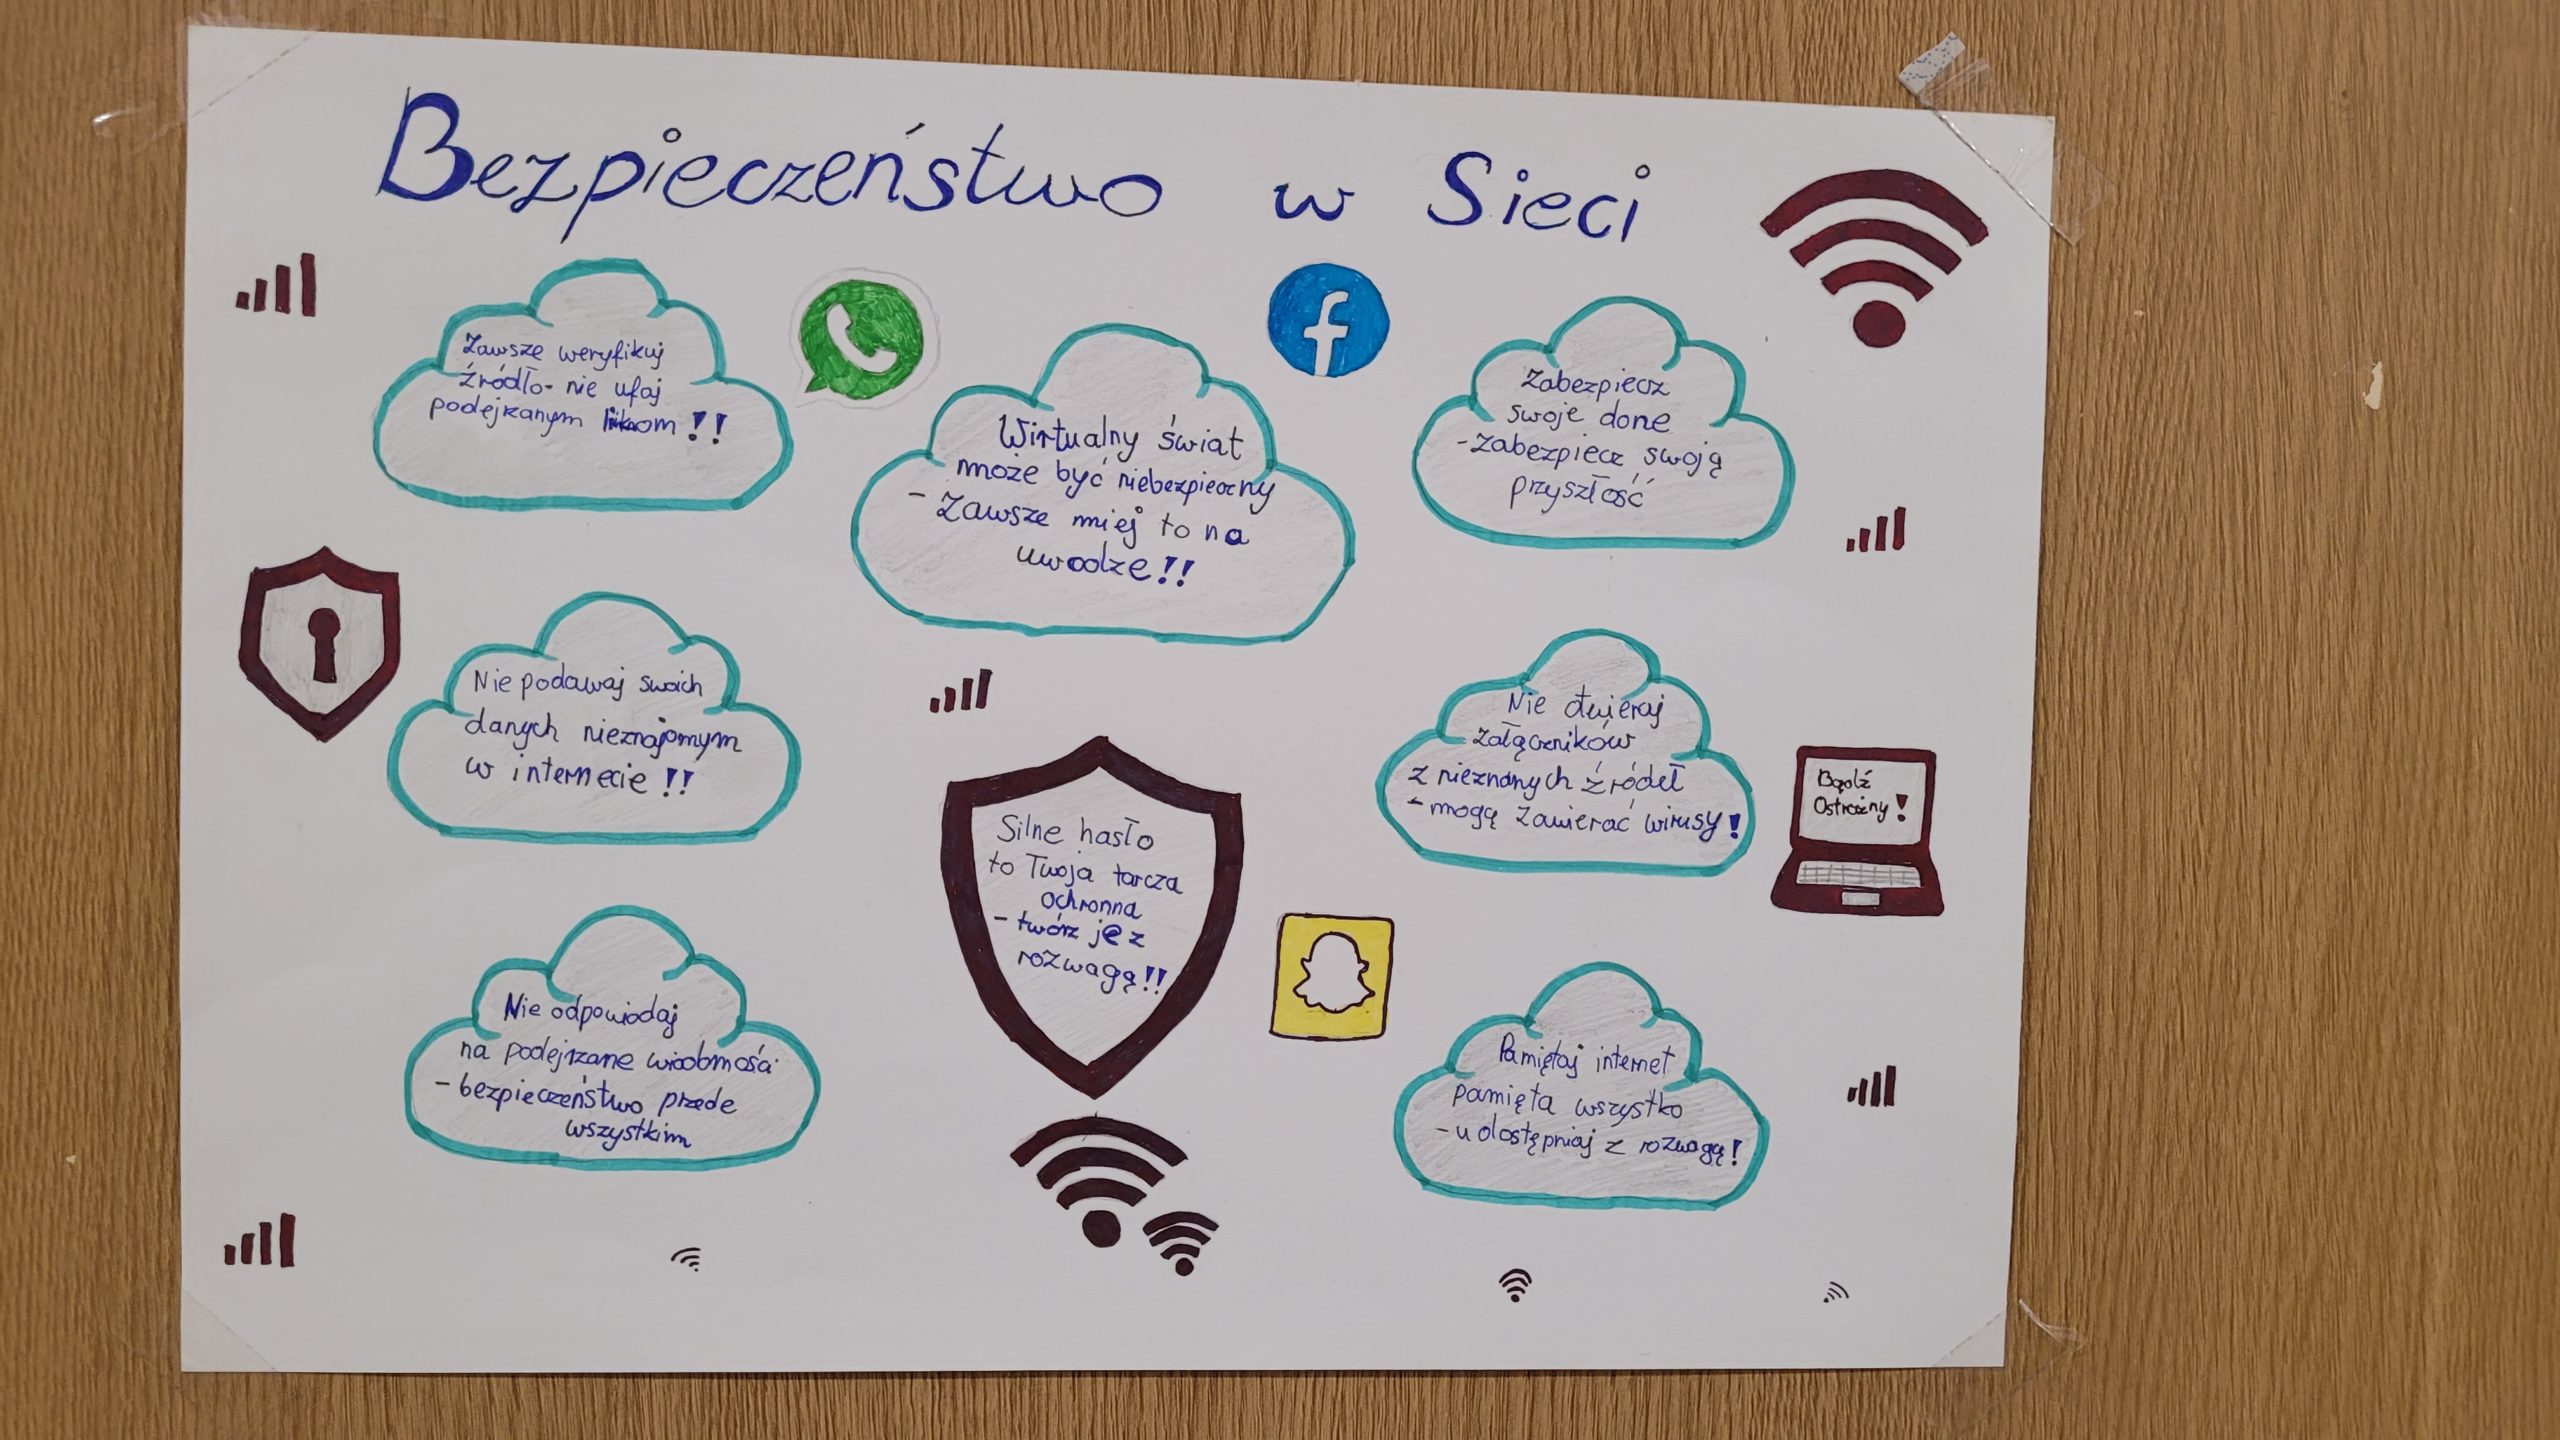 Bezpieczeństwo w Sieci
Zawsze weryfikuj
źródło- nie ufaj
podejrzanym likom!!
Wirtualny świat
może być niebezpieczny
- Zawsze miej to na
uwadze!!
Zabezpiecz
swoje dane
- zabezpiecz swoją
przyszłość
Nie podawaj swoich
danych nieznajomym
w internecie!!
Nie otwieraj
załączników
z nieznanych źródeł
- mogą zawierać wirusy!
Bądź
Ostrożny!
Silne hasło
to Twoja tarcza
ochronna
- twórz je z
rozwagą!!
Nie odpowiadaj
na podejrzane wiadomości
- bezpieczeństwo przede
wszystkim
Pamiętaj internet
pamięta wszystko
- udostępniaj z rozwagą!